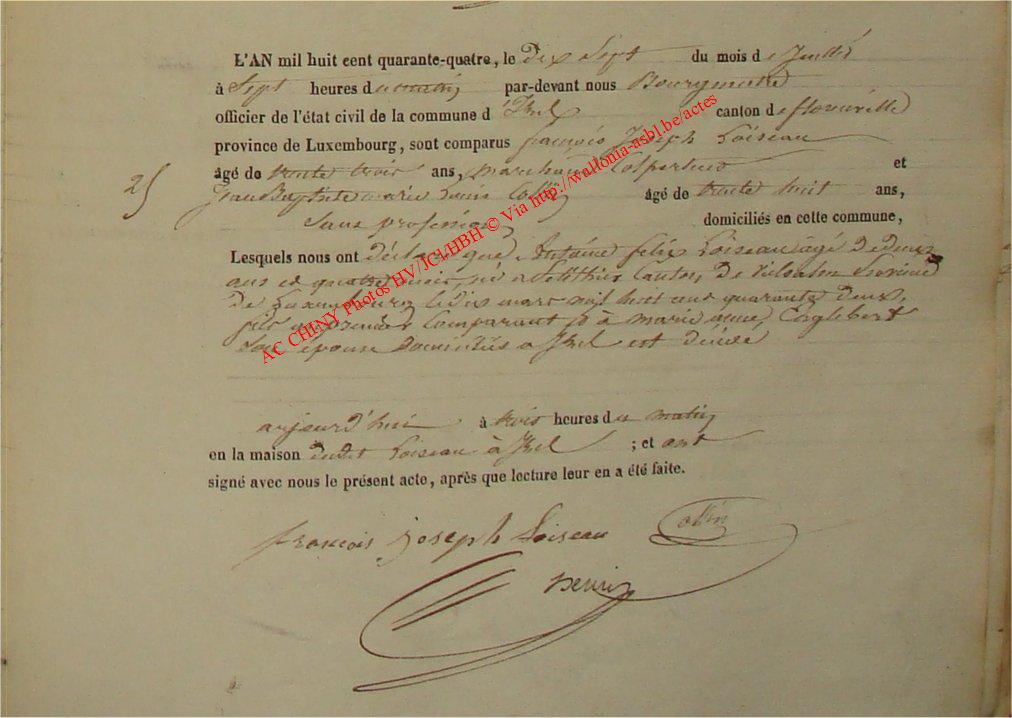 L'AN mil huit cent quarante-quatre, le dix Sept du mois de Juillet
à Sept heures du matin par-devant nous Bourgmestre
officier de l'état civil de la commune d'Izel canton de florenville
province de Luxembourg, sont comparus françois Joseph Loiseau
âgé de trente trois ans, marchand Colporteur et
25
Jean Baptiste marie Collin âgé de trente huit ans,
Sans profession domiciliés en cette commune,
Lesquels nous ont déclaré que Antoine felix Loiseau agé de deux
ans et quatre mois, né a Canton de vielsalm Province
de Luxembourg le dix mars mil huit cent quarante deux,
fils du premier Comparant et à marie anne Englebert
Son épouse domiciliés a Izel est décédé
aujourd'hui à trois heures du matin
en la maison dudit Loiseau à Izel ; et ont
signé avec nous le présent acte, après que lecture leur en a été faite.
françois joseph Loiseau Collin
henin
AC CHINY Photos HV/JCl/HBH © Via http://wallonia-asbl.be/actes